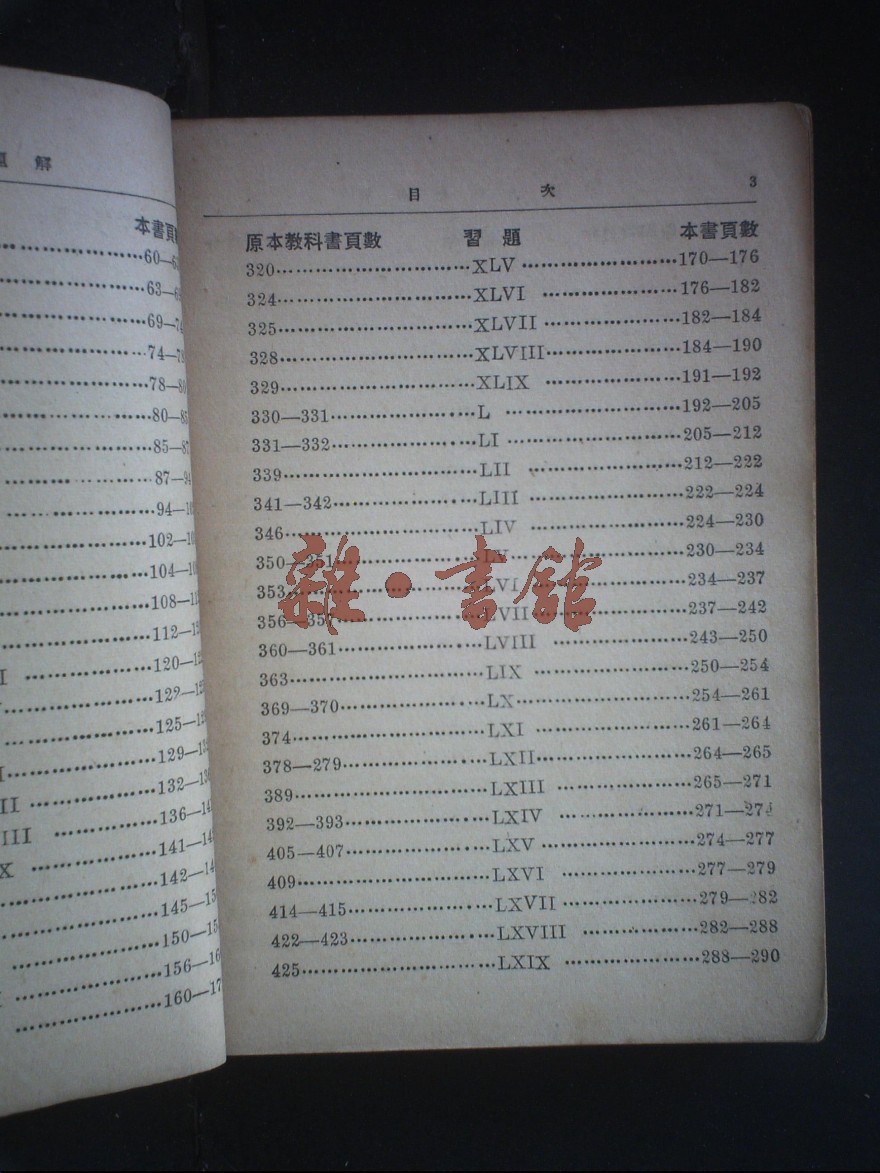 解
本書頁數
60—6
63—6
69—7
74—7
78—8
80—8
85—8
87—9
94—1
102—1
104—1
108—1
112—1
120—12
122—12
125—12
129—13
132—13
136—14
141—14
142—14
145—15
150—15
156—16
160—17
目 次 3
原本教科書頁數 習題 本書頁數
320 XLV 170—176
324 XLVI 176—182
325 XLVII 182—184
328 XLVIII 184—190
329 XLIX 191—192
330—331 L 192—205
331—332 LI 205—212
339 LII 212—222
341—342 LIII 222—224
346 LIV 224—230
350—351 LV 230—234
353 LVI 234—237
356—357 LVII 237—242
360—361 LVIII 243—250
363 LIX 250—254
369—370 LX 254—261
374 LXI 261—264
378—279 LXII 264—265
389 LXIII 265—271
392—393 LXIV 271—273
405—407 LXV 274—277
409 LXVI 277—279
414—415 LXVII 279—282
422—423 LXVIII 282—288
425 LXIX 288—290
雜·書館